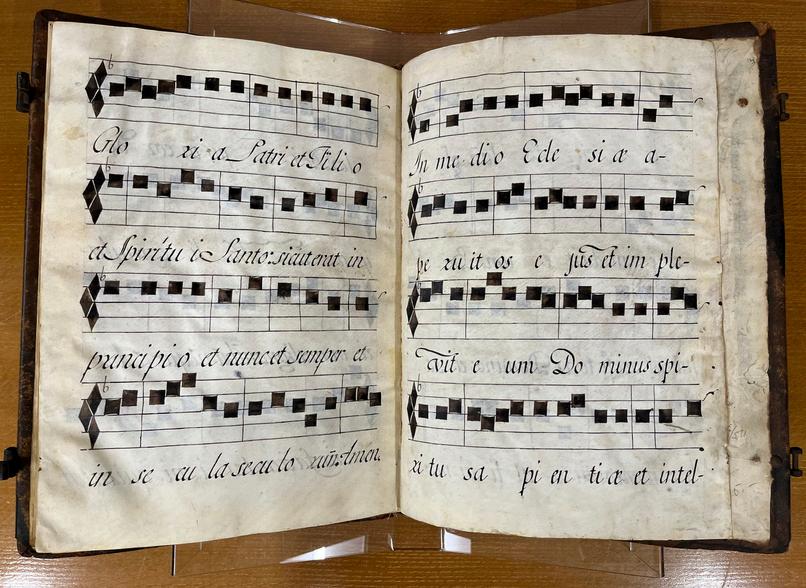 Glo ri a Patri et Fili o
et Spiritu i Santo: sicut erat in
principi o et nunc et semper et
in se cu la secu lo rum: Amen.
In me dio Ecle si æ a-
pe ru it os e jus et im ple-
vit e um Do minus spi-
ri tu sa pi en ti æ et intel-